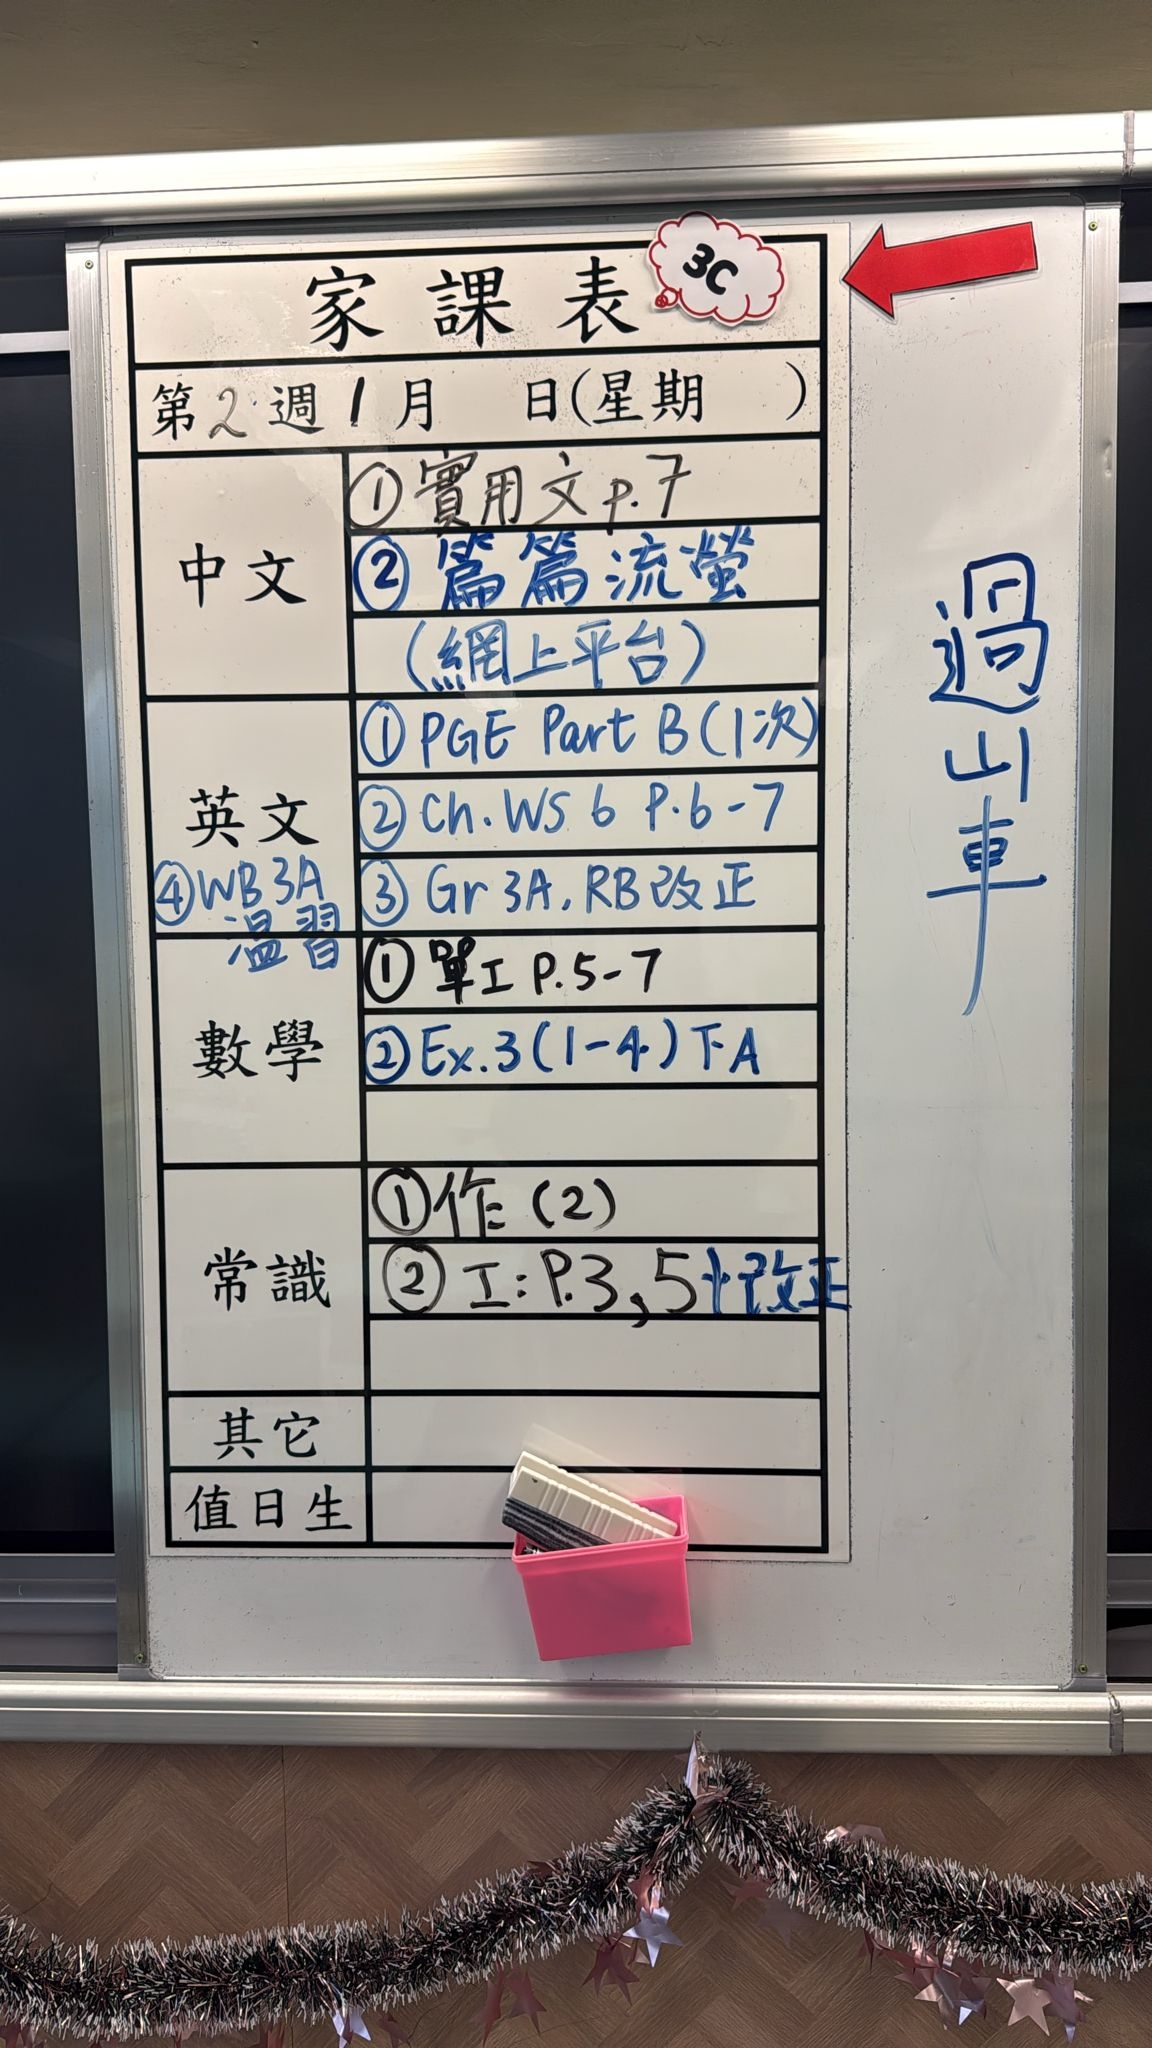 家課表 3C
第2週1月 日(星期 )
中文
①實用文p.7
②篇篇流螢
(網上平台)
英文
①PGE Part B(1次)
②Ch.WS 6 P.6-7
③Gr 3A, RB改正
④WB3A
溫習
數學
①單工P.5-7
②Ex.3(1-4)下A
常識
①作(2)
②工:P.3,5+改正
其它
值日生
過山車